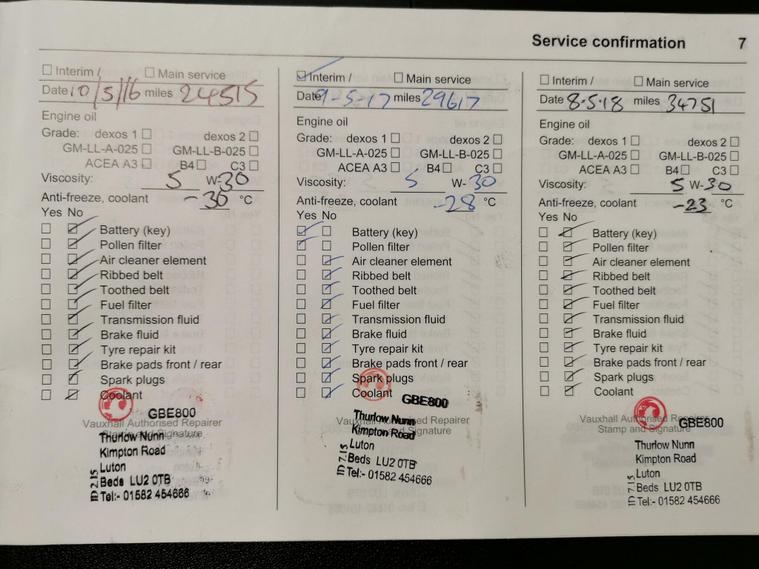 Service confirmation 7
Interim / Main service
Date 10/5/16 miles 24515
Engine oil
Grade: dexos 1 dexos 2
GM-LL-A-025 GM-LL-B-025
ACEA A3 B4 C3
Viscosity: 5 W-30
Anti-freeze, coolant -30 °C
Yes No
Battery (key)
Pollen filter
Air cleaner element
Ribbed belt
Toothed belt
Fuel filter
Transmission fluid
Brake fluid
Tyre repair kit
Brake pads front / rear
Spark plugs
Coolant
GBE800
Vauxhall Authorised Repairer
Stamp and Signature
Thurlow Nunn
Kimpton Road
Luton
Beds LU2 0TB
Tel:- 01582 454666
Interim / Main service
Date 9-5-17 miles 29617
Engine oil
Grade: dexos 1 dexos 2
GM-LL-A-025 GM-LL-B-025
ACEA A3 B4 C3
Viscosity: 5 W-30
Anti-freeze, coolant -28 °C
Yes No
Battery (key)
Pollen filter
Air cleaner element
Ribbed belt
Toothed belt
Fuel filter
Transmission fluid
Brake fluid
Tyre repair kit
Brake pads front / rear
Spark plugs
Coolant
GBE800
Vauxhall Authorised Repairer
Stamp and Signature
Thurlow Nunn
Kimpton Road
Luton
Beds LU2 0TB
Tel:- 01582 454666
Interim / Main service
Date 8.5.18 miles 34751
Engine oil
Grade: dexos 1 dexos 2
GM-LL-A-025 GM-LL-B-025
ACEA A3 B4 C3
Viscosity: 5 W-30
Anti-freeze, coolant -23 °C
Yes No
Battery (key)
Pollen filter
Air cleaner element
Ribbed belt
Toothed belt
Fuel filter
Transmission fluid
Brake fluid
Tyre repair kit
Brake pads front / rear
Spark plugs
Coolant
GBE800
Vauxhall Authorised Repairer
Stamp and Signature
Thurlow Nunn
Kimpton Road
Luton
Beds LU2 0TB
Tel:- 01582 454666